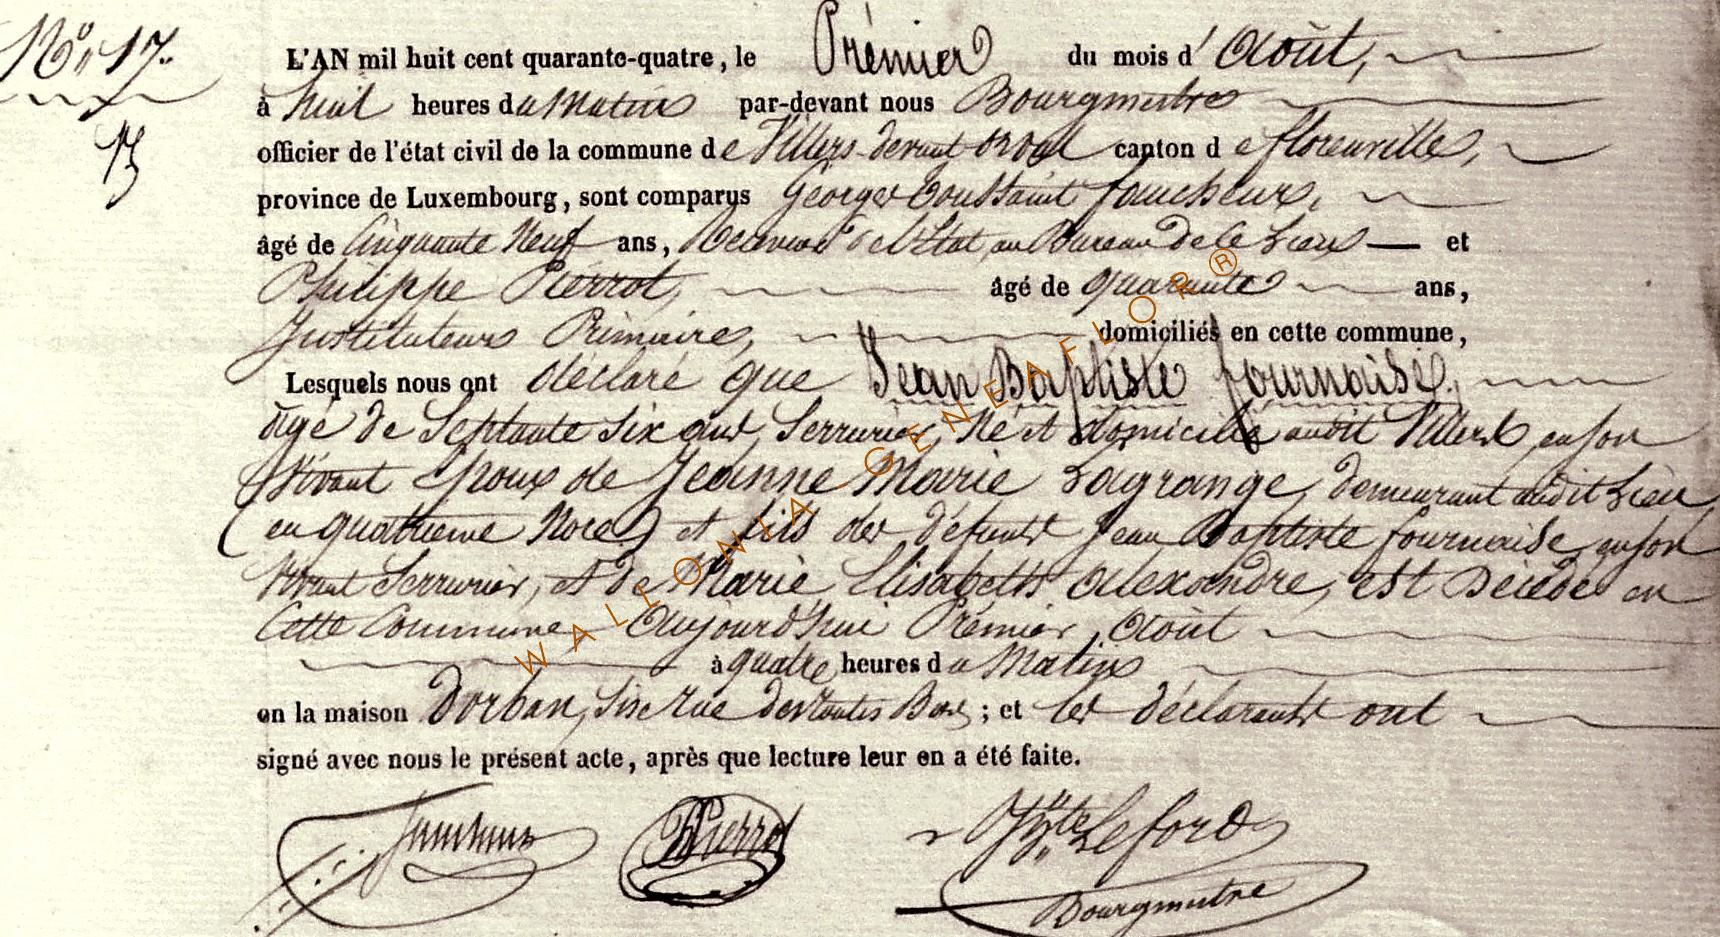 N° 17.
L'AN mil huit cent quarante-quatre, le Prémier du mois d' Août,
à huit heures du Matin par-devant nous Bourgmestre
officier de l'état civil de la commune de Villers-devant-orval canton de florenville,
province de Luxembourg, sont comparus Georges Toussaint faucheux,
âgé de Cinquante Neuf ans, Receveur de l'Etat au Bureau de ce Lieu et
Philippe Pierrot, âgé de quarante ans,
Instituteur Primaire, domiciliés en cette commune,
Lesquels nous ont déclaré que Jean Baptiste fournaise,
âgé de Septante six ans, Serrurier, Né et domicilié audit Villers, en son
Vivant Epoux de Jeanne Marie Lagrange, demeurant audit Lieu
(en quatrieme Noce) et fils des défunts Jean Baptiste fournaise, en son
Vivant Serrurier, et de Marie Elisabeth Alexandre, est Décédé en
Cette Commune Aujourd'hui Prémier Août
à quatre heures du Matin
en la maison Dorban, Sise Rue des Bas ; et les déclarants ont
signé avec nous le présent acte, après que lecture leur en a été faite.
faucheux PPierrot Hte Leford
Bourgmestre
WALLONIA GENEAFLOR ®